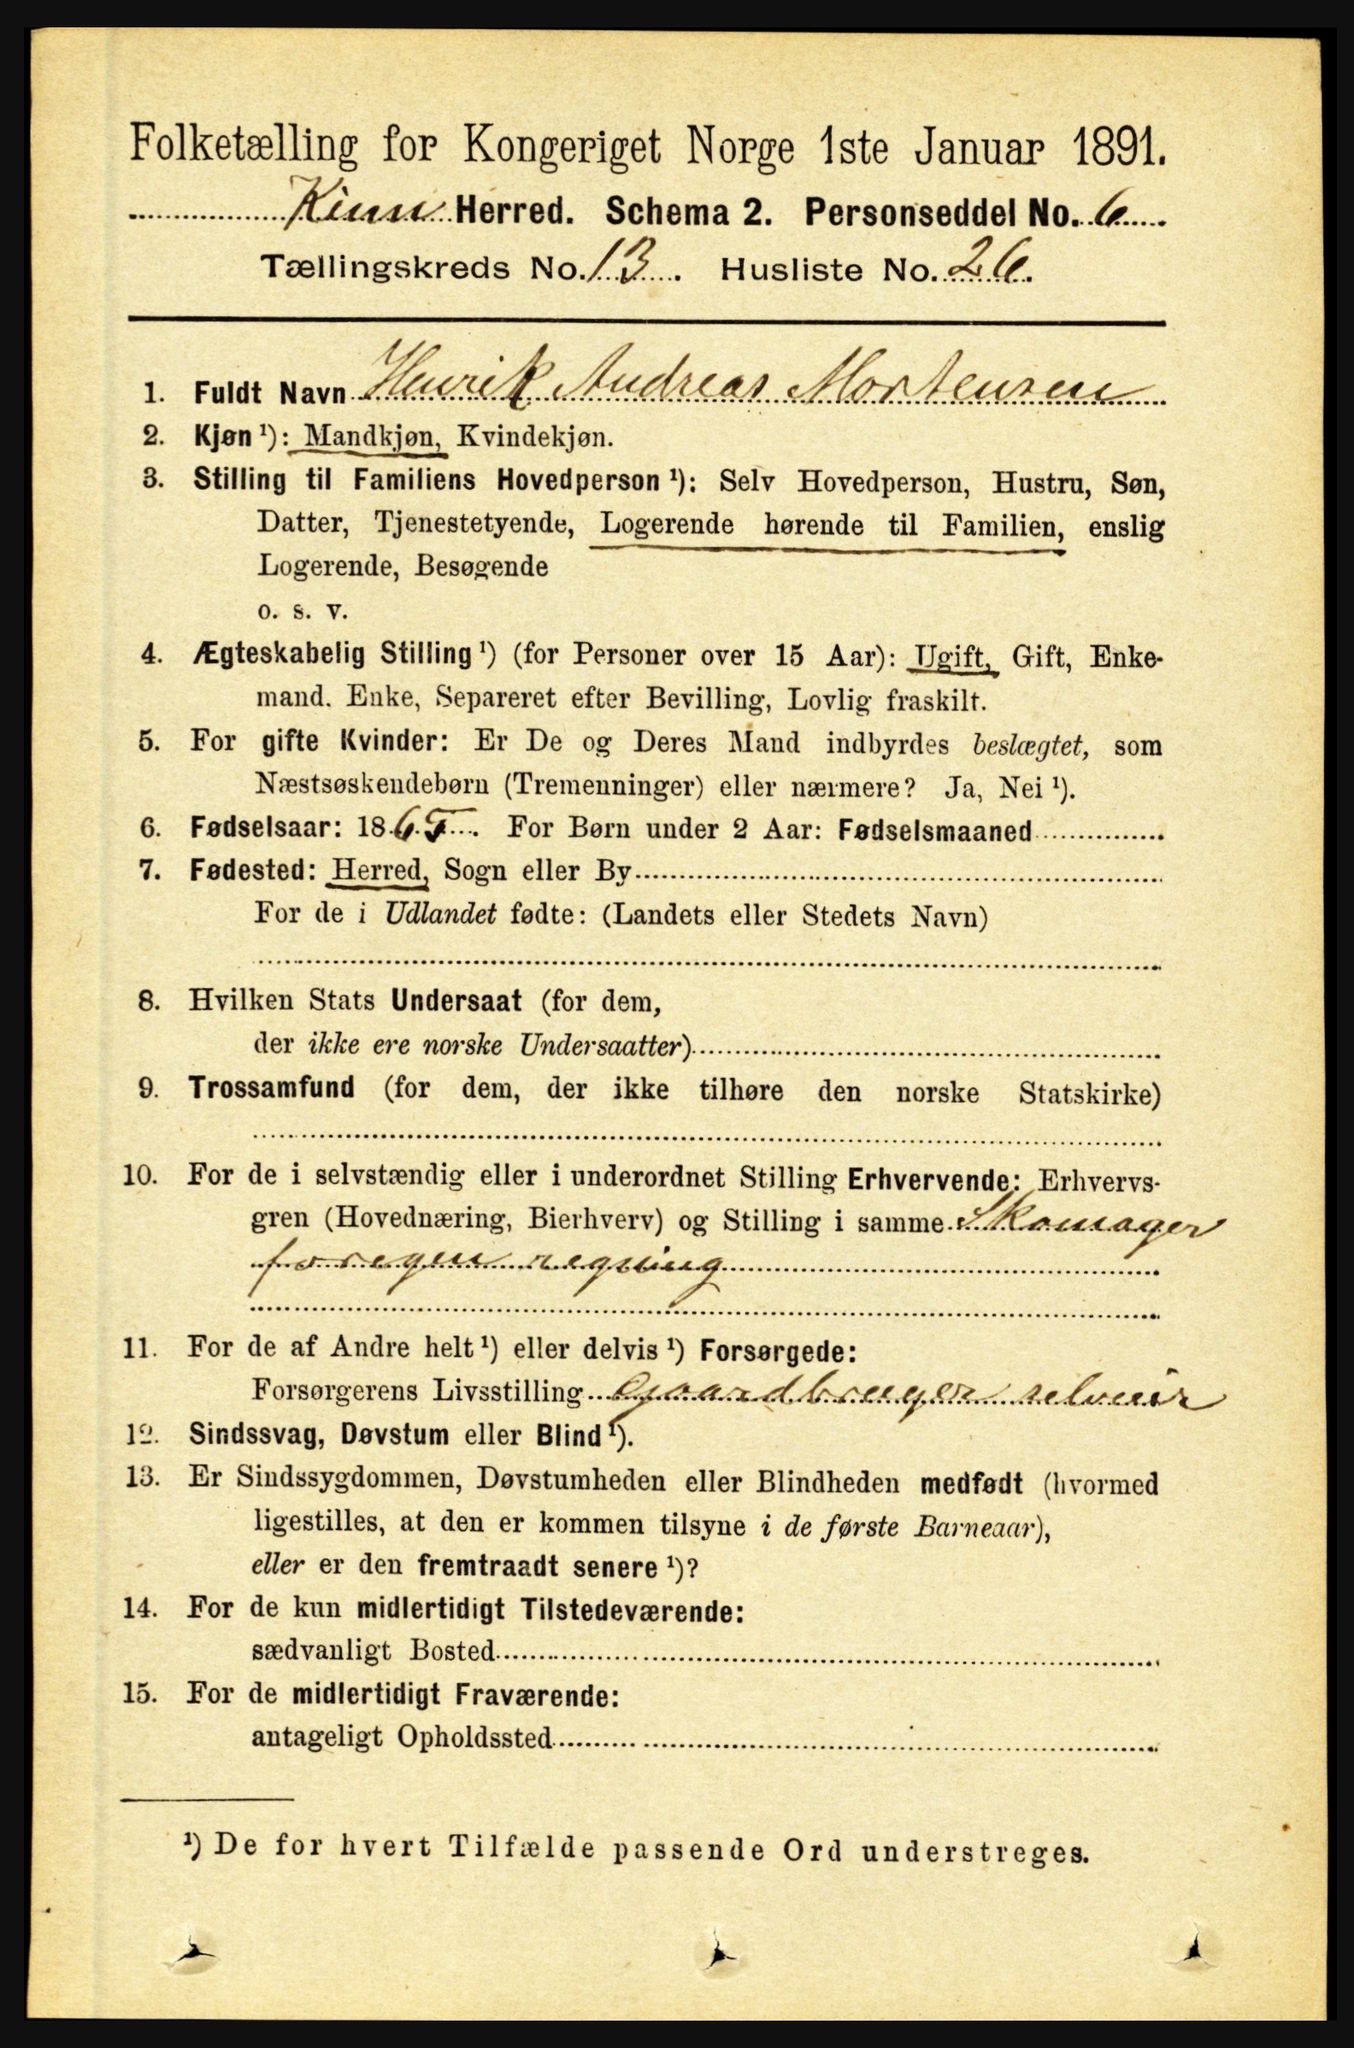 Folketælling for Kongeriget Norge 1ste Januar 1891.
Kinn Herred. Schema 2. Personseddel No. 6
Tællingskreds No. 13. Husliste No. 26.
1. Fuldt Navn Henrik Andreas Mortensen
2. Kjøn ¹): Mandkjøn, Kvindekjøn.
3. Stilling til Familiens Hovedperson ¹): Selv Hovedperson, Hustru, Søn,
Datter, Tjenestetyende, Logerende hørende til Familien, enslig
Logerende, Besøgende
o. s. v.
4. Ægteskabelig Stilling ¹) (for Personer over 15 Aar): Ugift, Gift, Enke-
mand. Enke, Separeret efter Bevilling, Lovlig fraskilt.
5. For gifte Kvinder: Er De og Deres Mand indbyrdes beslægtet, som
Næstsøskendebørn (Tremenninger) eller nærmere? Ja, Nei ¹).
6. Fødselsaar: 1865. For Børn under 2 Aar: Fødselsmaaned
7. Fødested: Herred, Sogn eller By
For de i Udlandet fødte: (Landets eller Stedets Navn)
8. Hvilken Stats Undersaat (for dem,
der ikke ere norske Undersaatter)
9. Trossamfund (for dem, der ikke tilhøre den norske Statskirke)
10. For de i selvstændig eller i underordnet Stilling Erhvervende: Erhvervs-
gren (Hovednæring, Bierhverv) og Stilling i samme Skomager
for egen regning
11. For de af Andre helt ¹) eller delvis ¹) Forsørgede:
Forsørgerens Livsstilling Gaardbruger selveier
12. Sindssvag, Døvstum eller Blind ¹).
13. Er Sindssygdommen, Døvstumheden eller Blindheden medfødt (hvormed
ligestilles, at den er kommen tilsyne i de første Barneaar),
eller er den fremtraadt senere ¹)?
14. For de kun midlertidigt Tilstedeværende:
sædvanligt Bosted
15. For de midlertidigt Fraværende:
antageligt Opholdssted
¹) De for hvert Tilfælde passende Ord understreges.